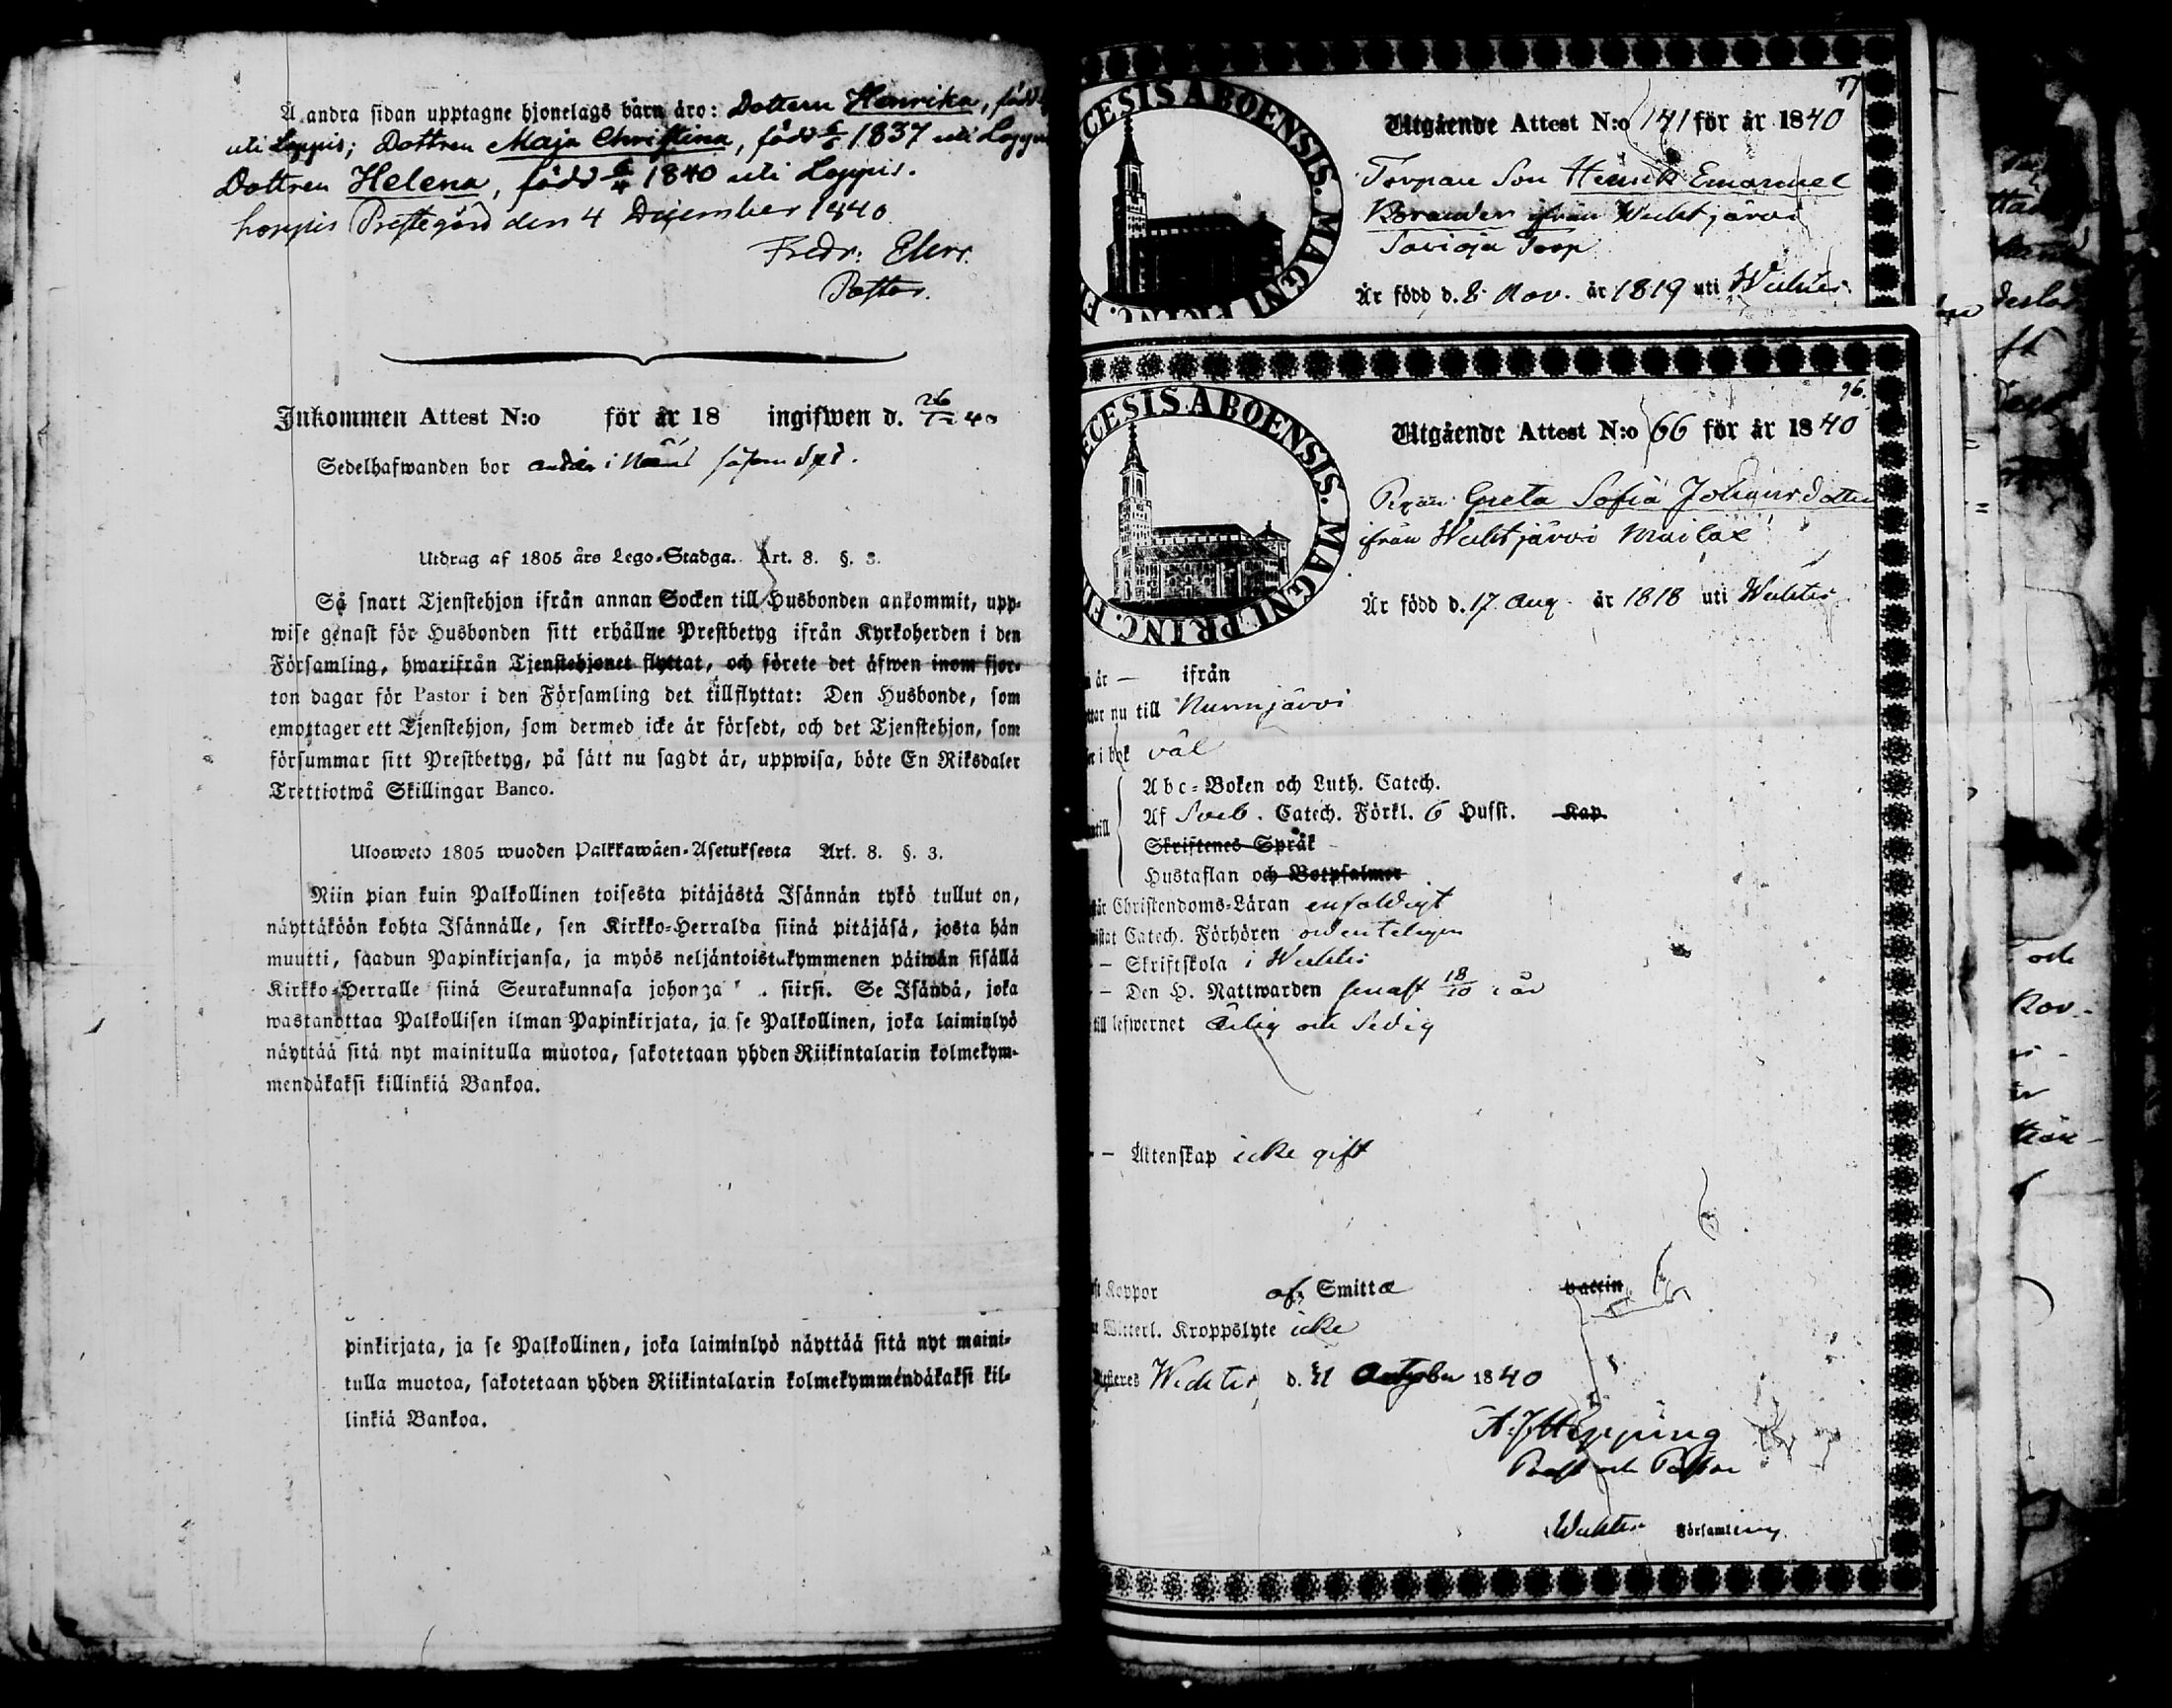 Å andra sidan upptagne hjonelags barn äro: Dottern Henrika, född
uti Loppis; Dottren Maja Christina, född 6/5 1837 uti Loppis
Dottren Helena, född 6/4 1840 uti Loppis.
Loppis Prestegård den 4 December 1840
Fredr:
Pastor.
Inkommen Attest N:o för år 18 ingifwen d. 26/12 40
Sedelhafwanden bor
Utdrag af 1805 års Lego-Stadga. Art. 8. §. 3.
Så snart Tjenstehjon ifrån annan Socken till Husbonden ankommit, upp-
wise genast för Husbonden sitt erhållne Prestbetyg ifrån Kyrkoherden i den
Församling, hwarifrån Tjenstehjonet flyttat, och förete det äfwen inom fjor-
ton dagar för Pastor i den Församling det tillflyttat: Den Husbonde, som
emottager ett Tjenstehjon, som dermed icke är försedt, och det Tjenstehjon, som
försummar sitt Prestbetyg, på sätt nu sagdt är, uppwisa, böte En Riksdaler
Trettiotwå Skillingar Banco.
Ulosweto 1805 wuoden Palkkawäen-Asetuksesta Art. 8. §. 3.
Niin pian kuin Palkollinen toisesta pitäjästä Isännän tykö tullut on,
näyttäköön kohta Isännälle, sen Kirkko-Herralda siinä pitäjäsä, josta hän
muutti, saadun Papinkirjansa, ja myös neljäntoistakymmenen päiwän sisällä
Kirkko-Herralle siinä Seurakunnasa johonga siirsi. Se Isändä, joka
wastanottaa Palkollisen ilman Papinkirjata, ja se Palkollinen, joka laiminlyö
näyttää sitä nyt mainitulla muotoa, sakotetaan yhden Riikintalarin kolmekym-
mendäkaksi killinkiä Bankoa.
pinkirjata, ja se Palkollinen, joka laiminlyö näyttää sitä nyt maini-
tulla muotoa, sakotetaan yhden Riikintalarin kolmekymmendäkaksi kil-
linkiä Bankoa.
ECESIS ABOENSIS. MAGNI
Utgående Attest N:o 141 för år 1840
Torpare Son Henrik Emanuel
ifrån Wichtjärvi
Savioja Torp
Är född d. 8 Nov. år 1819 uti Wichtis
96.
ECESIS ABOENSIS. MAGNI PRINC. FI
Utgående Attest N:o 66 för år 1840
Pigan Greta Sofia Johansdotter
ifrån Wichtjärvi Mailax
Är född d. 17 Aug. år 1818 uti Wichtis
år — ifrån
nu till Nurmjärvi
i bok väl
Abc-Boken och Luth. Catech.
Af Sveb. Catech. Förkl. 6 Husst. Kap.
Skriftenes Språk
Hustaflan och Botpsalmer
Christendoms-Läran enfaldigt
Catech. Förhören ordenteligen
— Skriftskola i Wichtis
— Den H. Nattwarden senast 18/10 i år
till lefwernet ärlig och sedig
— Äktenskap icke gift
Koppor af Smitta vaccin
Witterl. Kroppslyte icke
Wichtis d. 21 October 1840
A. J. Hipping
Prost och Pastor
Wichtis Församling